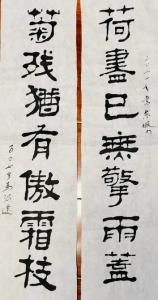 荷盡已無擎雨蓋
菊残猶有傲霜枝